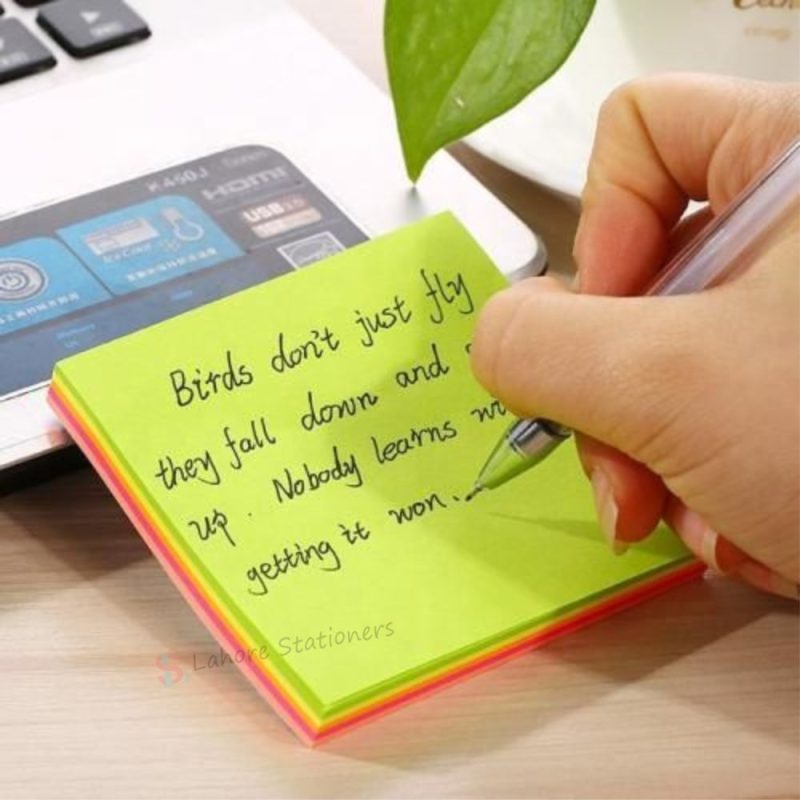 K450J
HDMI
USB 3.0
Ice Cool
Birds don't just fly
they fall down and
up. Nobody learns
getting it won.
Lahore Stationers